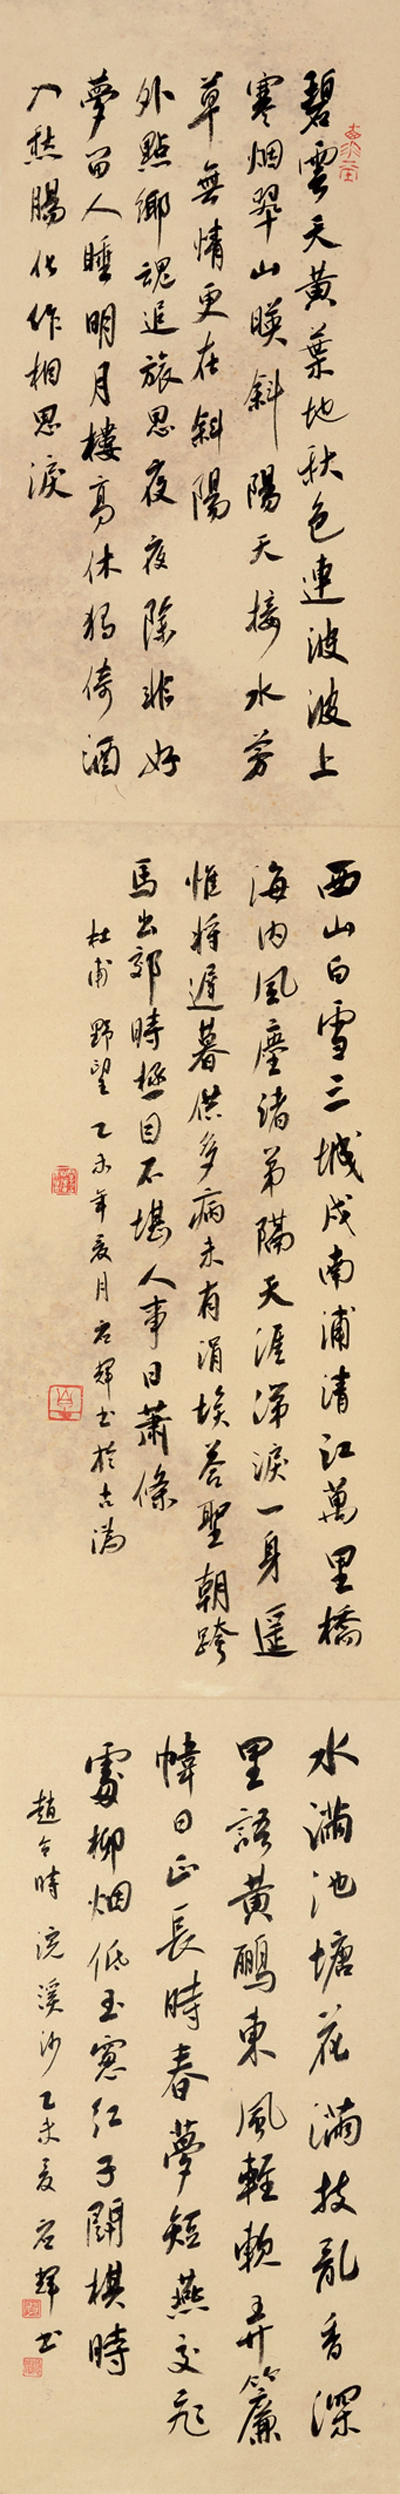 碧雲天黃葉地秋色連波波上
寒烟翠山暎斜陽天接水芳
草無情更在斜陽
外點鄉魂追旅思夜夜除非好
夢留人睡明月樓高休獨倚酒
入愁腸化作相思淚
西山白雪三城戍南浦清江萬里橋
海内風塵諸弟隔天涯涕淚一身遥
惟將遲暮供多病未有涓埃答聖朝跨
馬出郊時極目不堪人事日蕭條
杜甫 野望 乙未年夏月輝書於古
水滿池塘花滿枝亂香深
里語黃鸝東風輕軟弄簾
幃日正長時春夢短燕交飛
處柳烟低玉窗紅子鬪棋時
趙令時 浣溪沙 乙未夏輝書